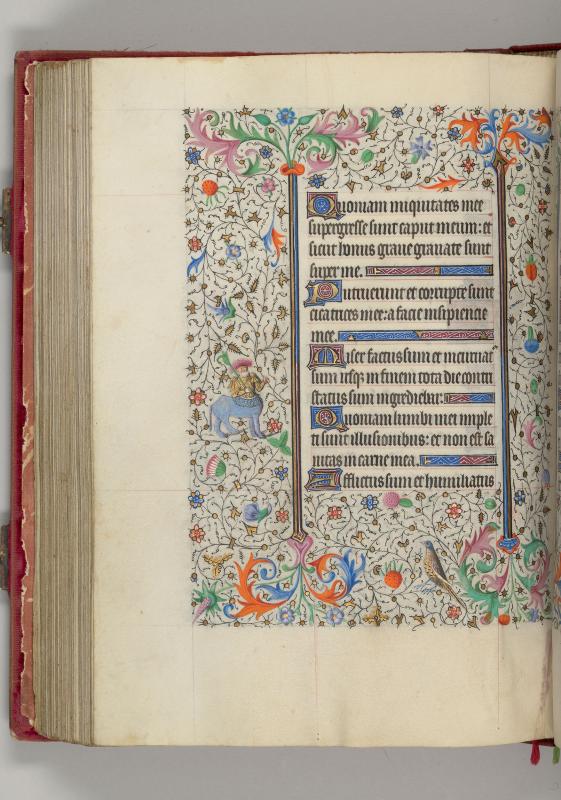 Quoniam iniquitates mee
supergresse sunt caput meum: et
sicut honus graue grauate sunt
super me.
Putruerunt et corrupte sunt
cicatrices mee: a facie insipiencie
mee.
Miser factus sum et incuruat⁹
sum usq; in finem tota die contri
status sum ingrediebar:
Quoniam lumbi mei imple
ti sunt illusionibus: et non est sa
nitas in carne mea.
Afflictus sum et humiliatus